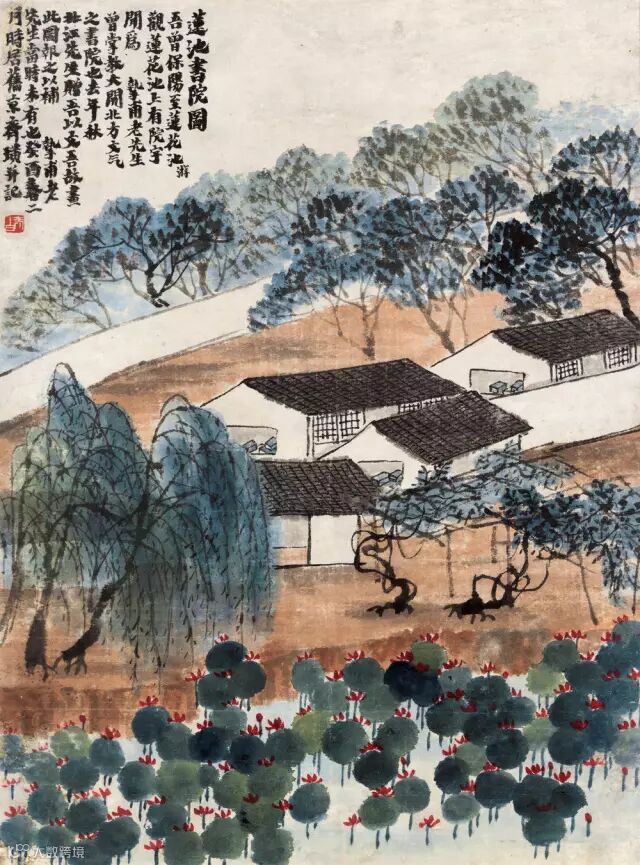 蓮池書院圖
吾曾保陽至蓮花池游
觀蓮花池上有院宇
聞為 摯甫老先生
曾掌教大開北方文气
之書院也去年秋
北江先生贈吾以文吾故畫
此圖報之以補 摯甫老
先生當時未有也癸酉春二
月時居舊京齊璜并記
大数跨境